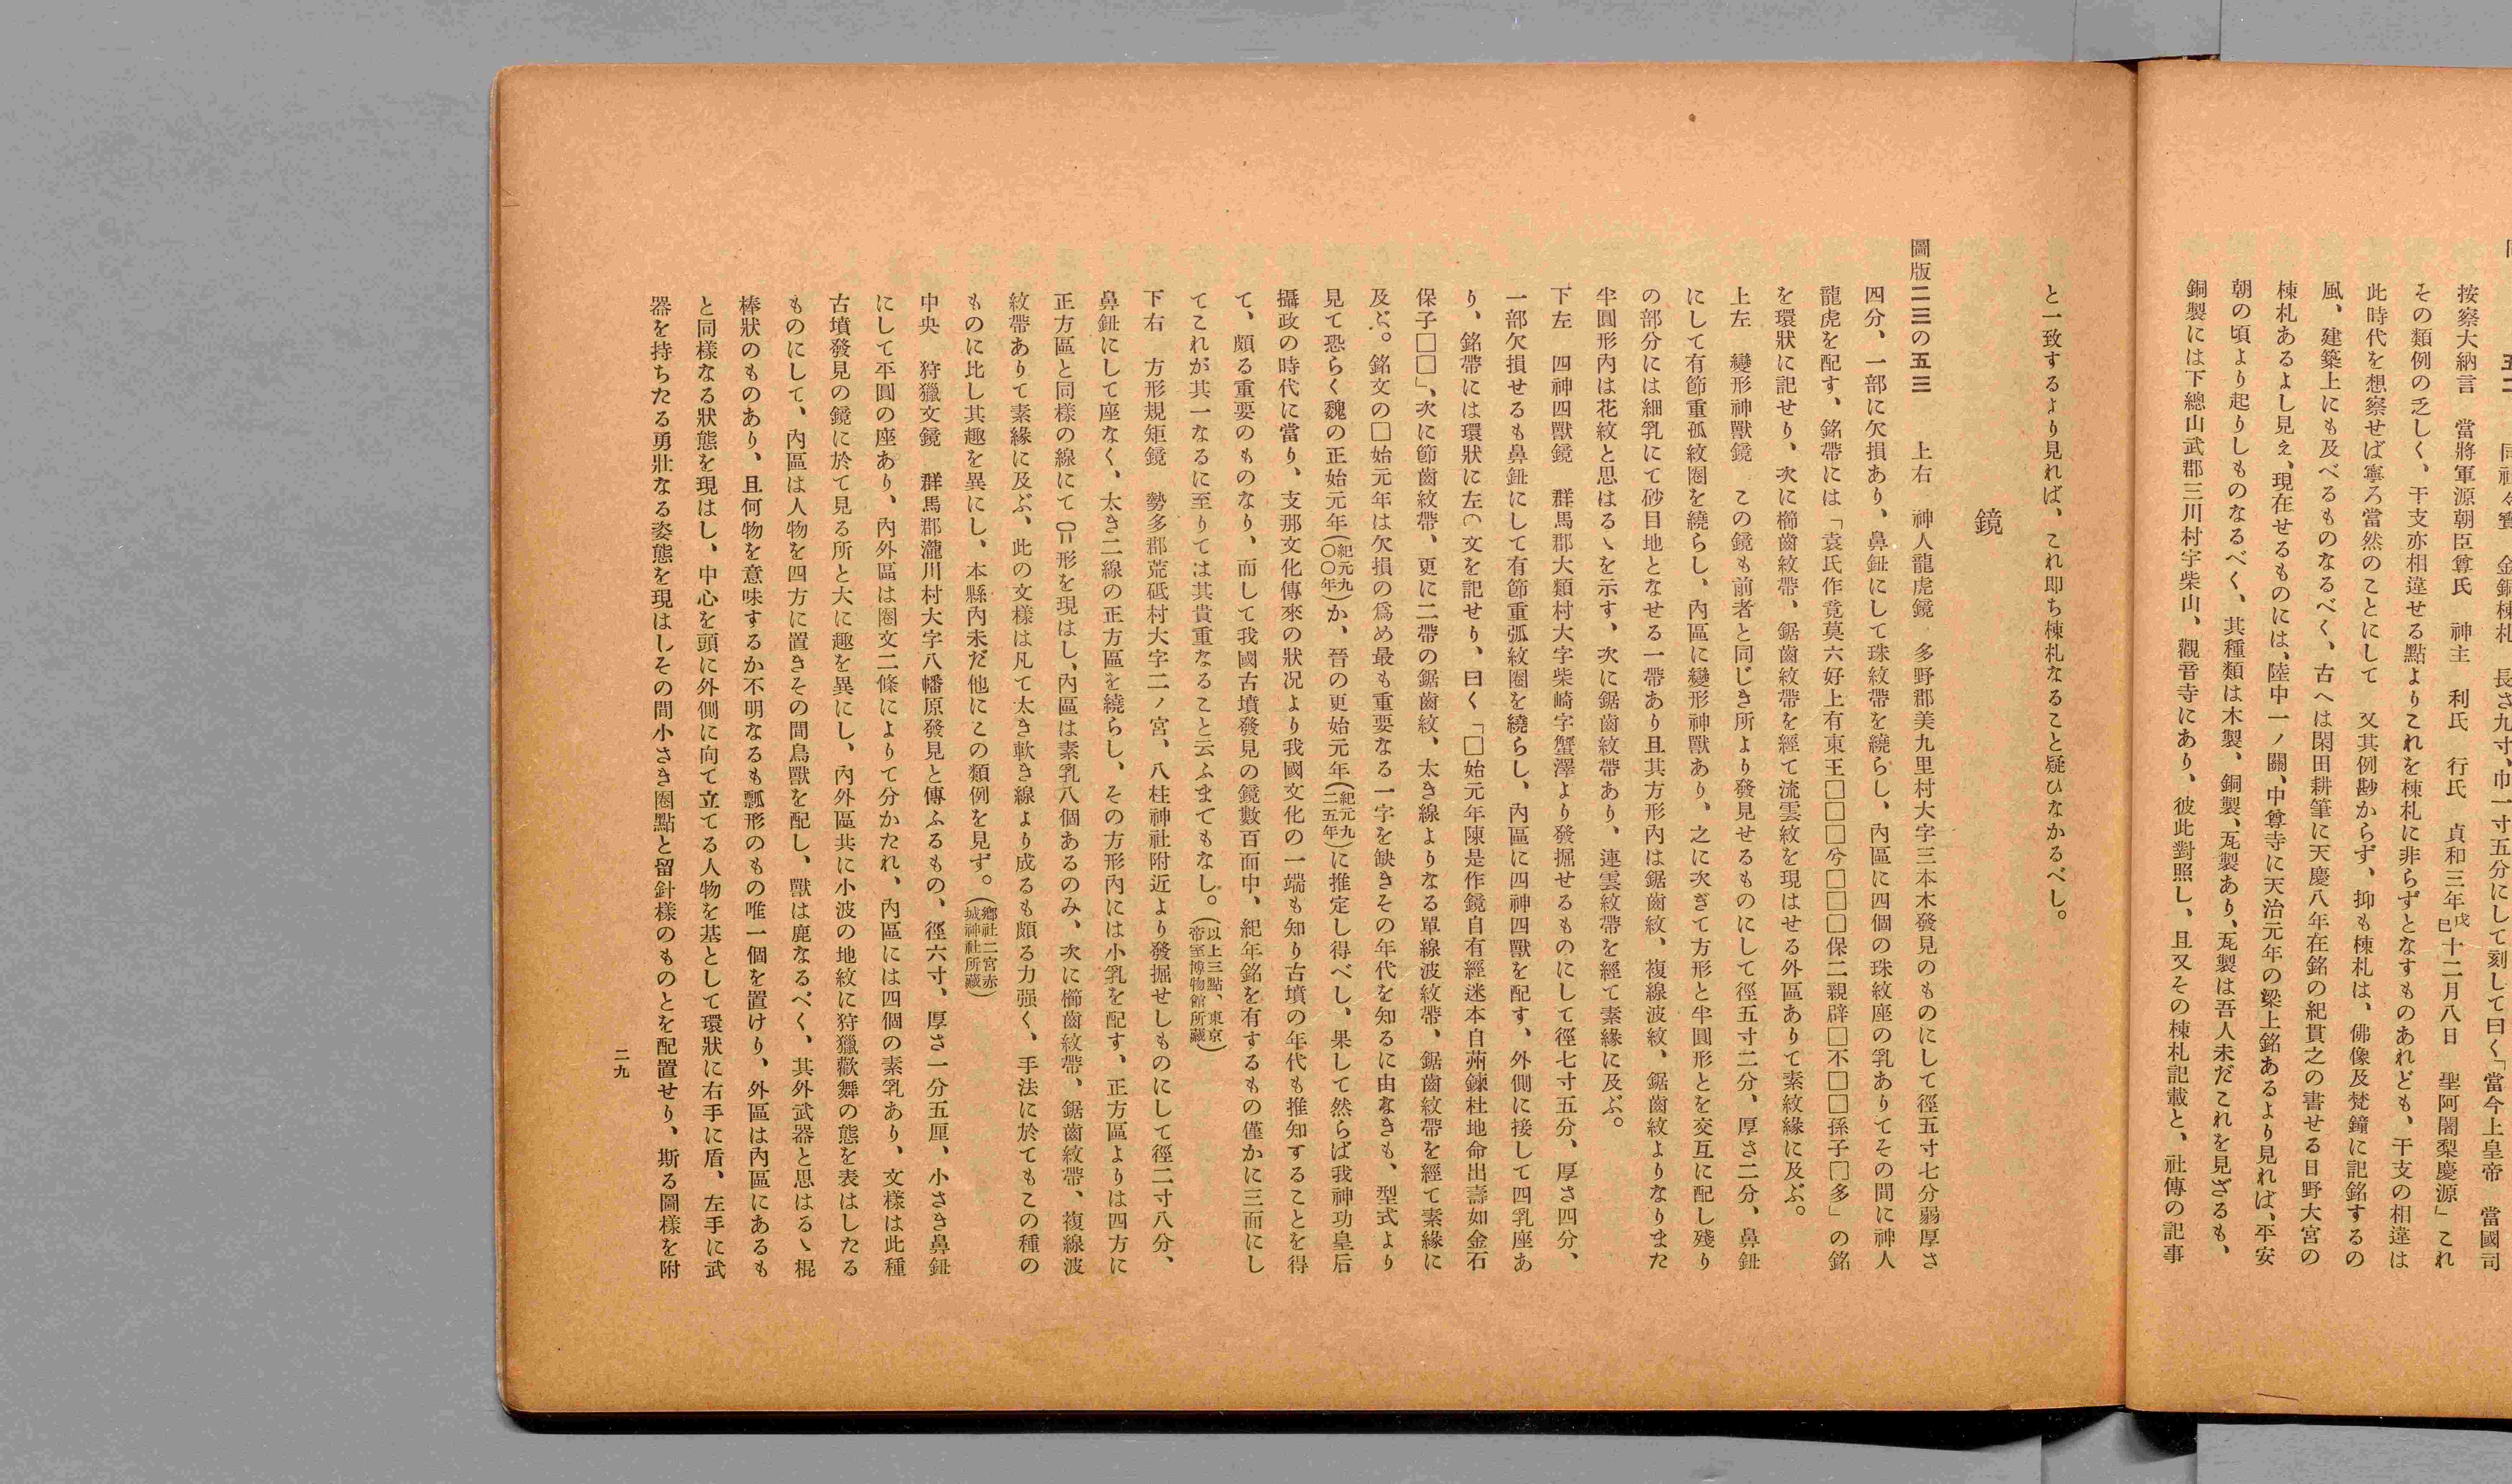 五二　同社々寶　金銅棟札　長さ九寸、巾一寸五分にして刻して曰く「當今上皇帝　當國司
按察大納言　當將軍源朝臣尊氏　神主　利氏　行氏　貞和三年戊巳十二月八日　聖阿闍梨慶源」これ
その類例の乏しく、干支亦相違せる點よりこれを棟札に非らずとなすものあれども、干支の相違は
此時代を想察せば寧ろ當然のことにして　又其例尠からず、抑も棟札は、佛像及梵鐘に記銘するの
風、建築上にも及べるものなるべく、古へは閑田耕筆に天慶八年在銘の紀貫之の書せる日野大宮の
棟札あるよし見え、現在せるものには、陸中一ノ關、中尊寺に天治元年の梁上銘あるより見れば、平安
朝の頃より起りしものなるべく、其種類は木製、銅製、瓦製あり、瓦製は吾人未だこれを見ざるも、
銅製には下總山武郡三川村字柴山、觀音寺にあり、彼此對照し、且又その棟札記載と、社傳の記事
と一致するより見れば、これ即ち棟札なること疑ひなかるべし。
鏡
圖版二三の五三　上右　神人龍虎鏡　多野郡美九里村大字三本木發見のものにして徑五寸七分弱厚さ
四分、一部に欠損あり、鼻鈕にして珠紋帶を繞らし、內區に四個の珠紋座の乳ありてその間に神人
龍虎を配す、銘帶には「袁氏作竟莫六好上有東王□□□今□□□保二親辟□不□□孫子□多」の銘
を環狀に記せり、次に櫛齒紋帶、鋸齒紋帶を經て流雲紋を現はせる外區ありて素紋緣に及ぶ。
上左　變形神獸鏡　この鏡も前者と同じき所より發見せるものにして徑五寸二分、厚さ二分、鼻鈕
にして有節重孤紋圈を繞らし、內區に變形神獸あり、之に次ぎて方形と半圓形とを交互に配し殘り
の部分には細乳にて砂目地となせる一帶あり且其方形內は鋸齒紋、複線波紋、鋸齒紋よりなりまた
半圓形內は花紋と思はるゝを示す、次に鋸齒紋帶あり、連雲紋帶を經て素緣に及ぶ。
下左　四神四獸鏡　群馬郡大類村大字柴崎字蟹澤より發掘せるものにして徑七寸五分、厚さ四分、
一部欠損せるも鼻鈕にして有節重弧紋圈を繞らし、內區に四神四獸を配す、外側に接して四乳座あ
り、銘帶には環狀に左の文を記せり、曰く「□始元年陳是作鏡自有經述本自荊鍊杜地命出壽如金石
保子□□」、次に節齒紋帶、更に二帶の鋸齒紋、太き線よりなる單線波紋帶、鋸齒紋帶を經て素緣に
及ぶ。銘文の□始元年は欠損の爲め最も重要なる一字を缺きその年代を知るに由なきも、型式より
見て恐らく魏の正始元年(紀元九〇〇年)か、晉の更始元年(紀元九二五年)に推定し得べし、果して然らば我神功皇后
攝政の時代に當り、支那文化傳來の狀況より我國文化の一端も知り古墳の年代も推知することを得
て、頗る重要のものなり、而して我國古墳發見の鏡數百面中、紀年銘を有するもの僅かに三面にし
てこれが其一なるに至りては其貴重なること云ふまでもなし。(以上三點、東京帝室博物館所藏)
下右　方形規矩鏡　勢多郡荒砥村大字二ノ宮、八柱神社附近より發掘せしものにして徑二寸八分、
鼻鈕にして座なく、太き二線の正方區を繞らし、その方形內には小乳を配す、正方區よりは四方に
正方區と同樣の線にて 形を現はし、內區は素乳八個あるのみ、次に櫛齒紋帶、鋸齒紋帶、複線波
紋帶ありて素緣に及ぶ、此の文樣は凡て太き軟き線より成るも頗る力强く、手法に於てもこの種の
ものに比し其趣を異にし、本縣內未だ他にこの類例を見ず。(鄕社二宮赤城神社所藏)
中央　狩獵文鏡　群馬郡瀧川村大字八幡原發見と傳ふるもの、徑六寸、厚さ一分五厘、小さき鼻鈕
にして平圓の座あり、內外區は圈文二條によりて分かたれ、內區には四個の素乳あり、文樣は此種
古墳發見の鏡に於て見る所と大に趣を異にし、內外區共に小波の地紋に狩獵歡舞の態を表はしたる
ものにして、內區は人物を四方に置きその間鳥獸を配し、獸は鹿なるべく、其外武器と思はるゝ棍
棒狀のものあり、且何物を意味するか不明なるも瓢形のもの唯一個を置けり、外區は內區にあるも
と同樣なる狀態を現はし、中心を頭に外側に向て立てる人物を基として環狀に右手に盾、左手に武
器を持ちたる勇壯なる姿態を現はしその間小さき圈點と留針樣のものとを配置せり、斯る圖樣を附
二九